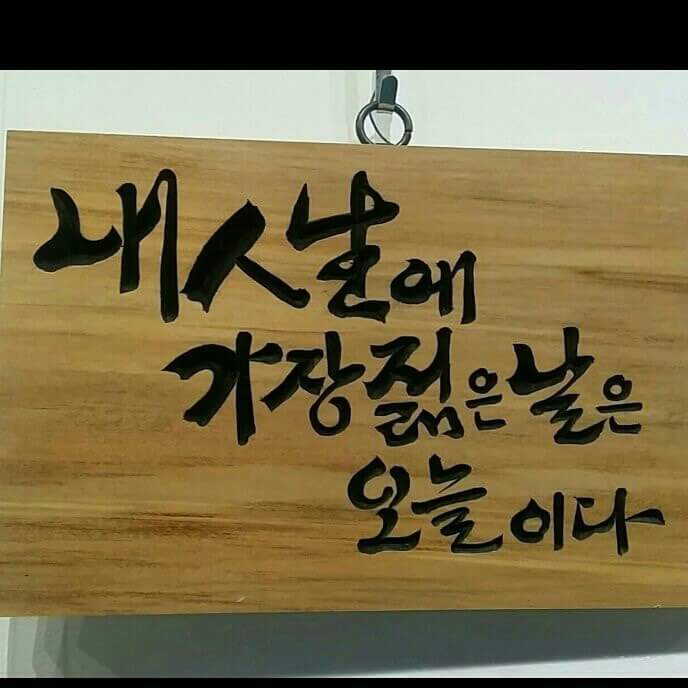 내 人生에
가장 젊은 날은
오늘이다